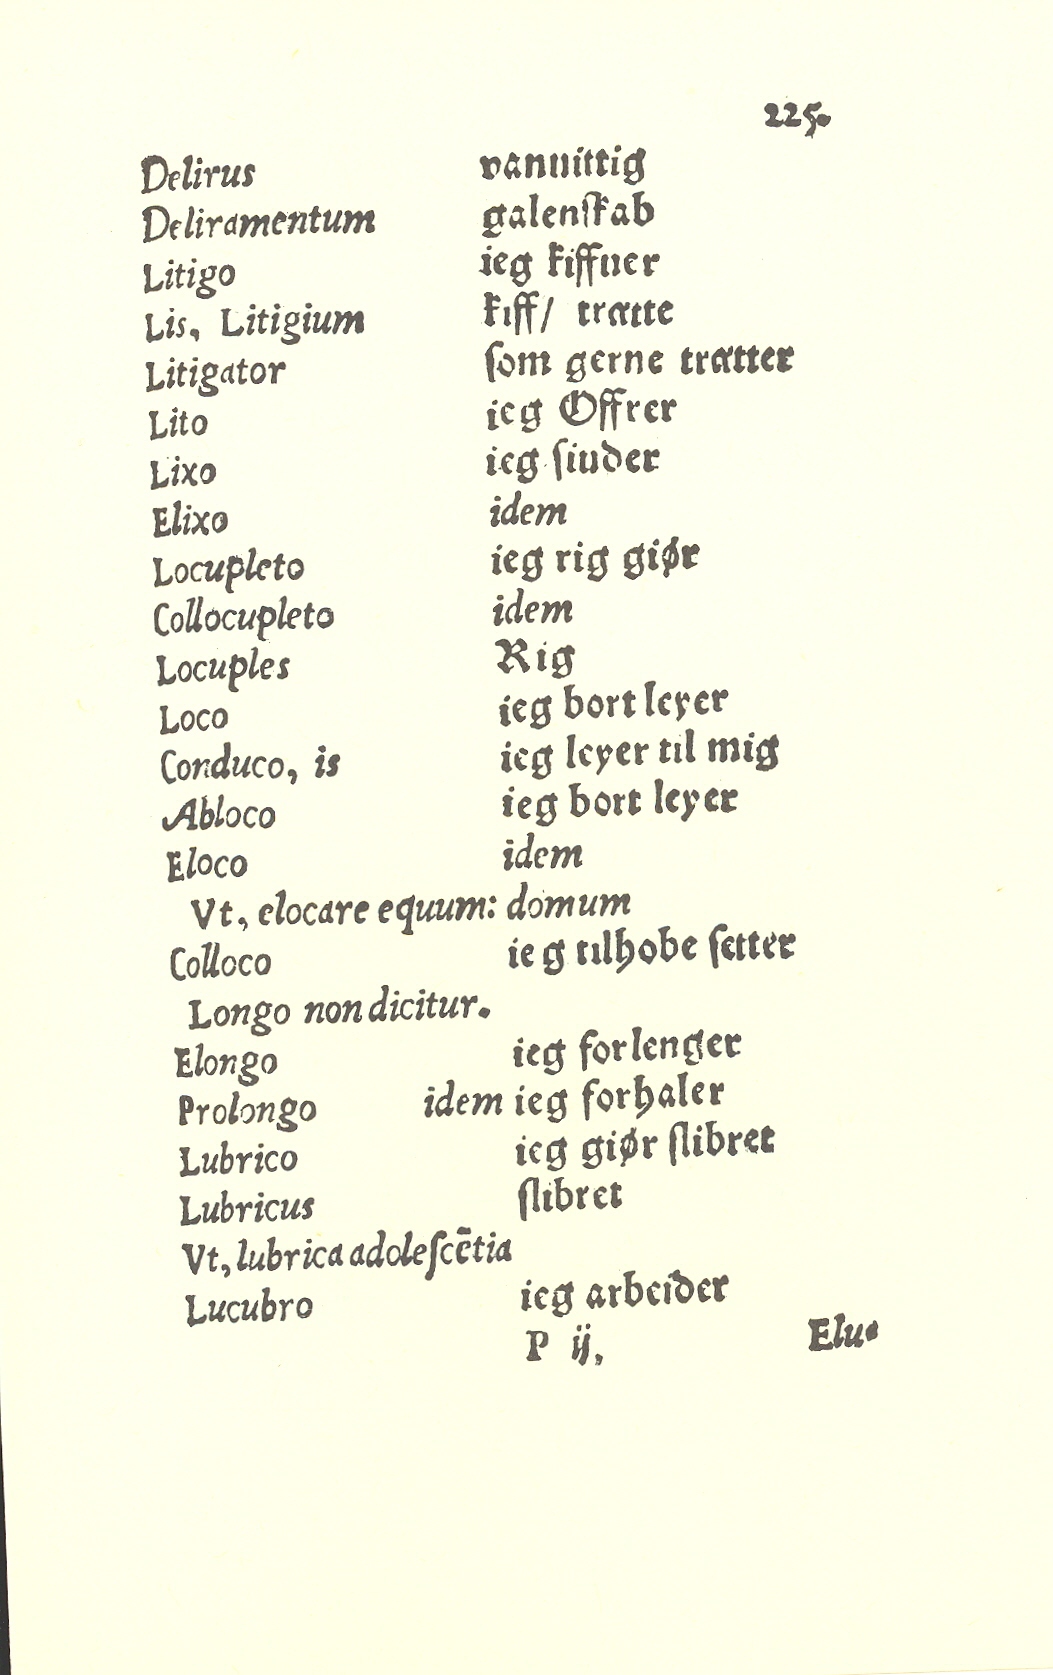 225.
Delirus vanuittig
Deliramentum galenſkab
Litigo ieg kiffuer
Lis, Litigium kiff/ trætte
Litigator ſom gerne trætter
Lito ieg Offrer
Lixo ieg ſiuder
Elixo idem
Locupleto ieg rig giør
Collocupleto idem
Locuples Rig
Loco ieg bort leyer
Conduco, is ieg leyer til mig
Abloco ieg bort leyer
Eloco idem
Vt, elocare equum: domum
Colloco ieg tilhobe ſetter
Longo non dicitur.
Elongo ieg forlenger
Prolongo idem ieg forhaler
Lubrico ieg giør ſlibret
Lubricus ſlibret
Vt, lubrica adoleſcẽtia
Lucubro ieg arbeider
P ij, Elu-